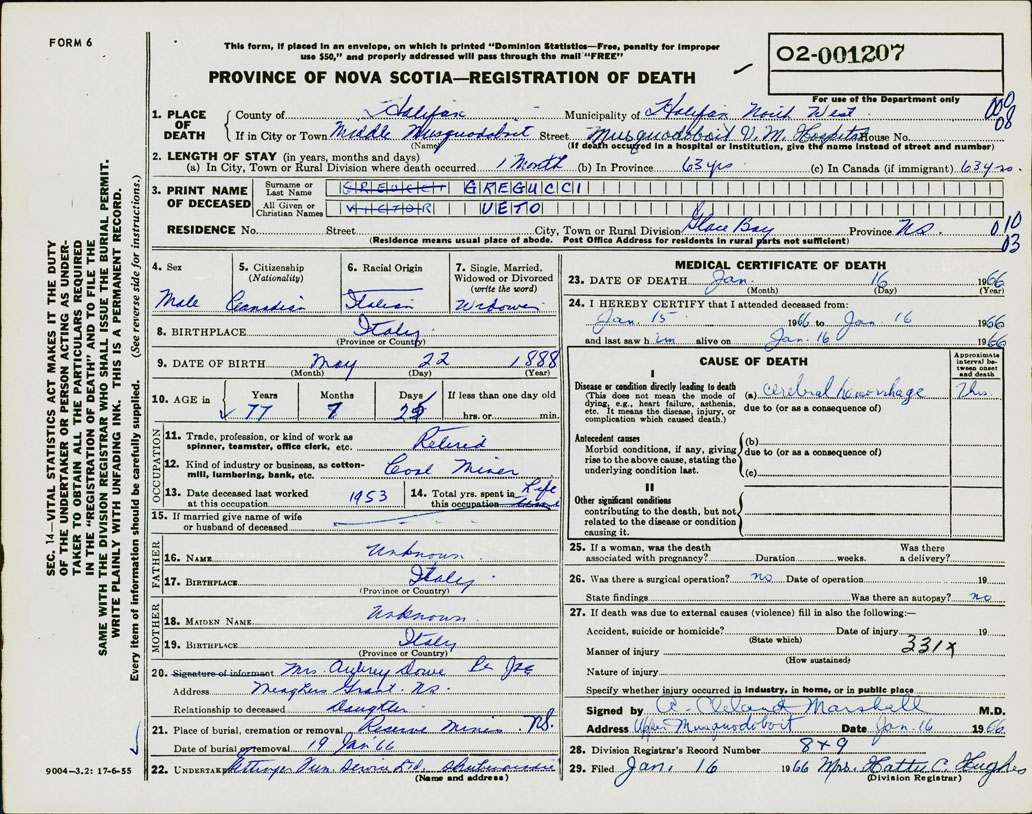 FORM 6
This form, if placed in an envelope, on which is printed "Dominion Statistics—Free, penalty for improper
use $50," and properly addressed will pass through the mail "FREE"
PROVINCE OF NOVA SCOTIA—REGISTRATION OF DEATH
02-001207
For use of the Department only
1. PLACE OF DEATH
County of Halifax Municipality of Halifax North West
If in City or Town Middle Musquodoboit Street Musquodoboit V. M. Hospital House No.
(Name) (If death occurred in a hospital or institution, give the name instead of street and number)
2. LENGTH OF STAY (in years, months and days)
(a) In City, Town or Rural Division where death occurred 1 Month (b) In Province 63 yrs. (c) In Canada (if immigrant) 63 yrs.
3. PRINT NAME OF DECEASED
Surname or Last Name GREGUCCI
All Given or Christian Names VICTOR UETO
RESIDENCE No. Street City, Town or Rural Division Glace Bay Province N.S. 010
03
(Residence means usual place of abode. Post Office Address for residents in rural parts not sufficient)
4. Sex
Male
5. Citizenship
(Nationality)
Canadian
6. Racial Origin
Italian
7. Single, Married,
Widowed or Divorced
(write the word)
Widower
8. BIRTHPLACE Italy
(Province or Country)
9. DATE OF BIRTH May 22 1888
(Month) (Day) (Year)
10. AGE in Years Months Days If less than one day old
77 hrs. or min.
OCCUPATION
11. Trade, profession, or kind of work as
spinner, teamster, office clerk, etc. Retired
12. Kind of industry or business, as cotton-
mill, lumbering, bank, etc. Coal Miner
13. Date deceased last worked
at this occupation 1953
14. Total yrs. spent in
this occupation Life
15. If married give name of wife
or husband of deceased
FATHER
16. NAME Unknown
17. BIRTHPLACE Italy
(Province or Country)
MOTHER
18. MAIDEN NAME Unknown
19. BIRTHPLACE Italy
(Province or Country)
20. Signature of informant Mrs. Aubrey Dowe
Address Meaghers Grant. N.S.
Relationship to deceased Daughter
21. Place of burial, cremation or removal Reserve Mines N.S.
Date of burial or removal 19 Jan 66
22. UNDERTAKER
(Name and address)
MEDICAL CERTIFICATE OF DEATH
23. DATE OF DEATH Jan. 16 1966
(Month) (Day) (Year)
24. I HEREBY CERTIFY that I attended deceased from:
Jan. 15 1966 to Jan 16 1966
and last saw him alive on Jan. 16 1966
CAUSE OF DEATH
Approximate
interval be-
tween onset
and death
I
Disease or condition directly leading to death
(This does not mean the mode of
dying, e.g., heart failure, asthenia,
etc. It means the disease, injury, or
complication which caused death.)
(a) Cerebral hemorrhage
due to (or as a consequence of)
Antecedent causes
Morbid conditions, if any, giving
rise to the above cause, stating the
underlying condition last.
(b)
due to (or as a consequence of)
(c)
II
Other significant conditions
contributing to the death, but not
related to the disease or condition
causing it.
25. If a woman, was the death Was there
associated with pregnancy? Duration weeks. a delivery?
26. Was there a surgical operation? no Date of operation 19
State findings Was there an autopsy? no
27. If death was due to external causes (violence) fill in also the following:—
Accident, suicide or homicide? Date of injury 19
(State which)
Manner of injury 331X
(How sustained)
Nature of injury
Specify whether injury occurred in industry, in home, or in public place
Signed by R. Cleland Marshall M.D.
Address Upper Musquodoboit Date Jan. 16 1966
28. Division Registrar's Record Number 849
29. Filed Jan. 16 1966 Mrs. Hattie C. Hughes
(Division Registrar)
SEC. 14—VITAL STATISTICS ACT MAKES IT THE DUTY
OF THE UNDERTAKER OR PERSON ACTING AS UNDER-
TAKER TO OBTAIN ALL THE PARTICULARS REQUIRED
IN THE "REGISTRATION OF DEATH" AND TO FILE THE
SAME WITH THE DIVISION REGISTRAR WHO SHALL ISSUE THE BURIAL PERMIT.
WRITE PLAINLY WITH UNFADING INK. THIS IS A PERMANENT RECORD.
Every item of information should be carefully supplied. (See reverse side for instructions.)
9004—3.2: 17-6-55